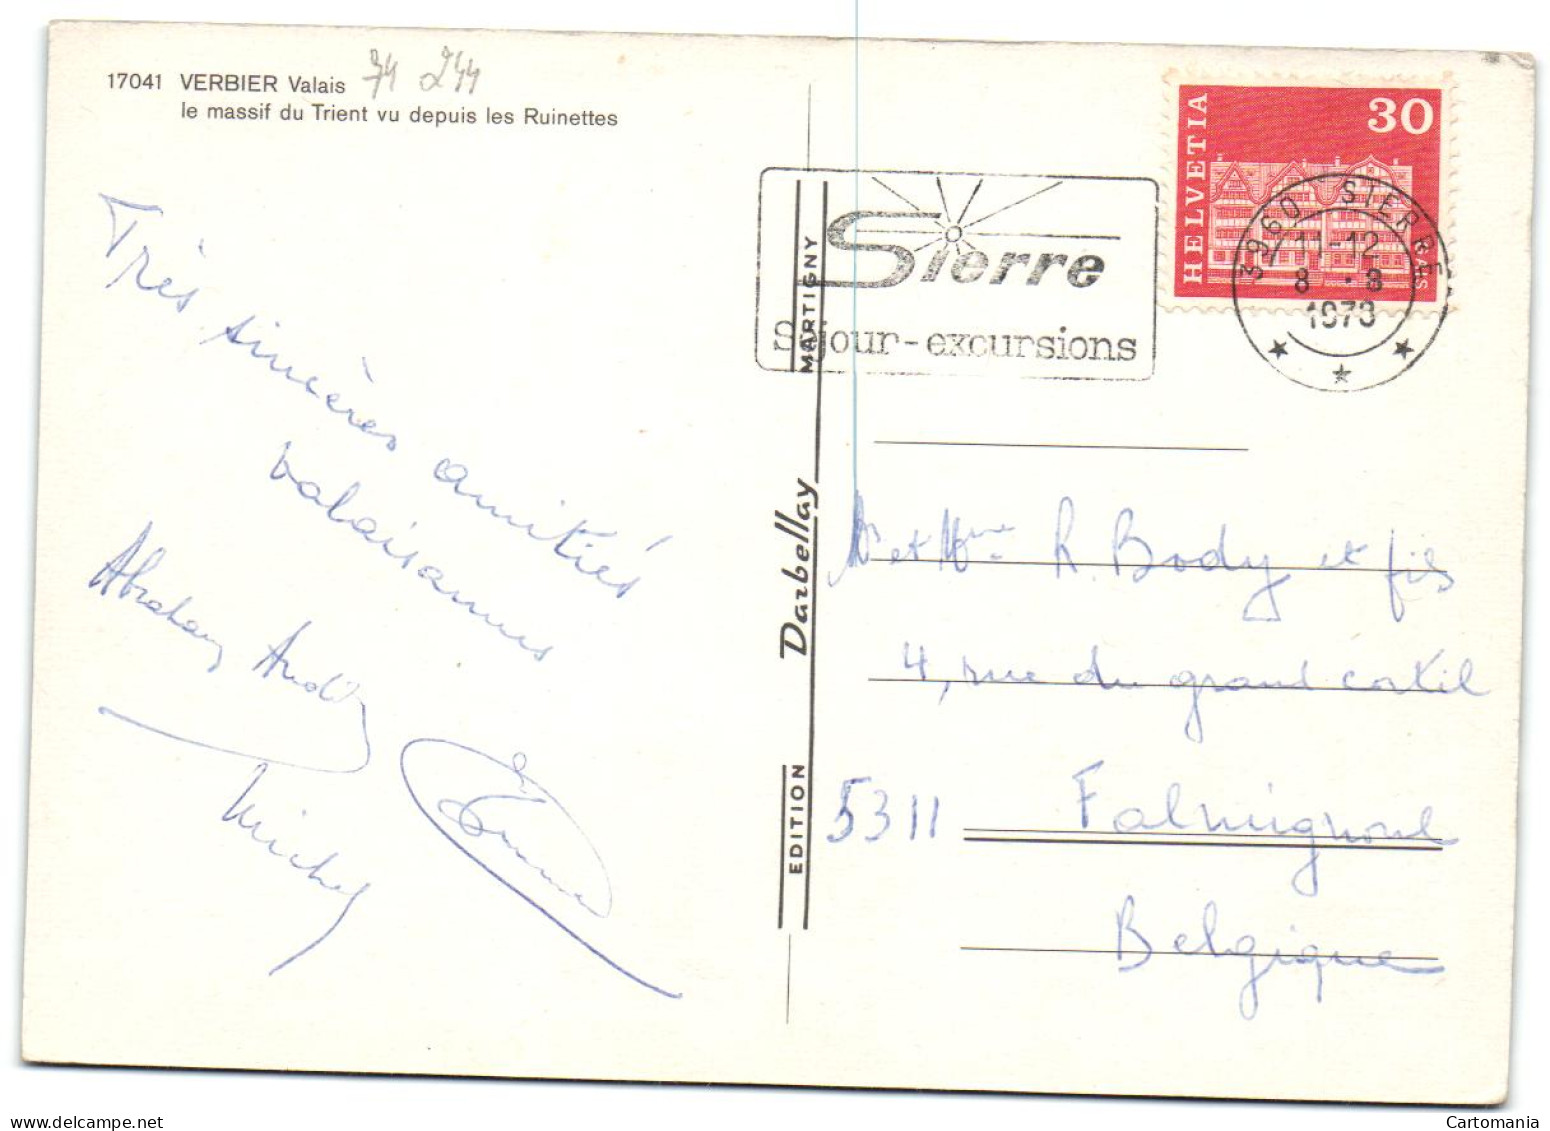 17041 VERBIER Valais 74 244
le massif du Trient vu depuis les Ruinettes
Très sincères amitiés
valaisannes
Abraham André
Michel
HELVETIA
30
3960 SIERRE
11-12
8 . 8
1973
Sierre
Séjour-excursions
EDITION Darbellay MARTIGNY
Mr et Mme R. Body et fils
4, rue du grand cortil
5311 Falmignoul
Belgique
Cartomania